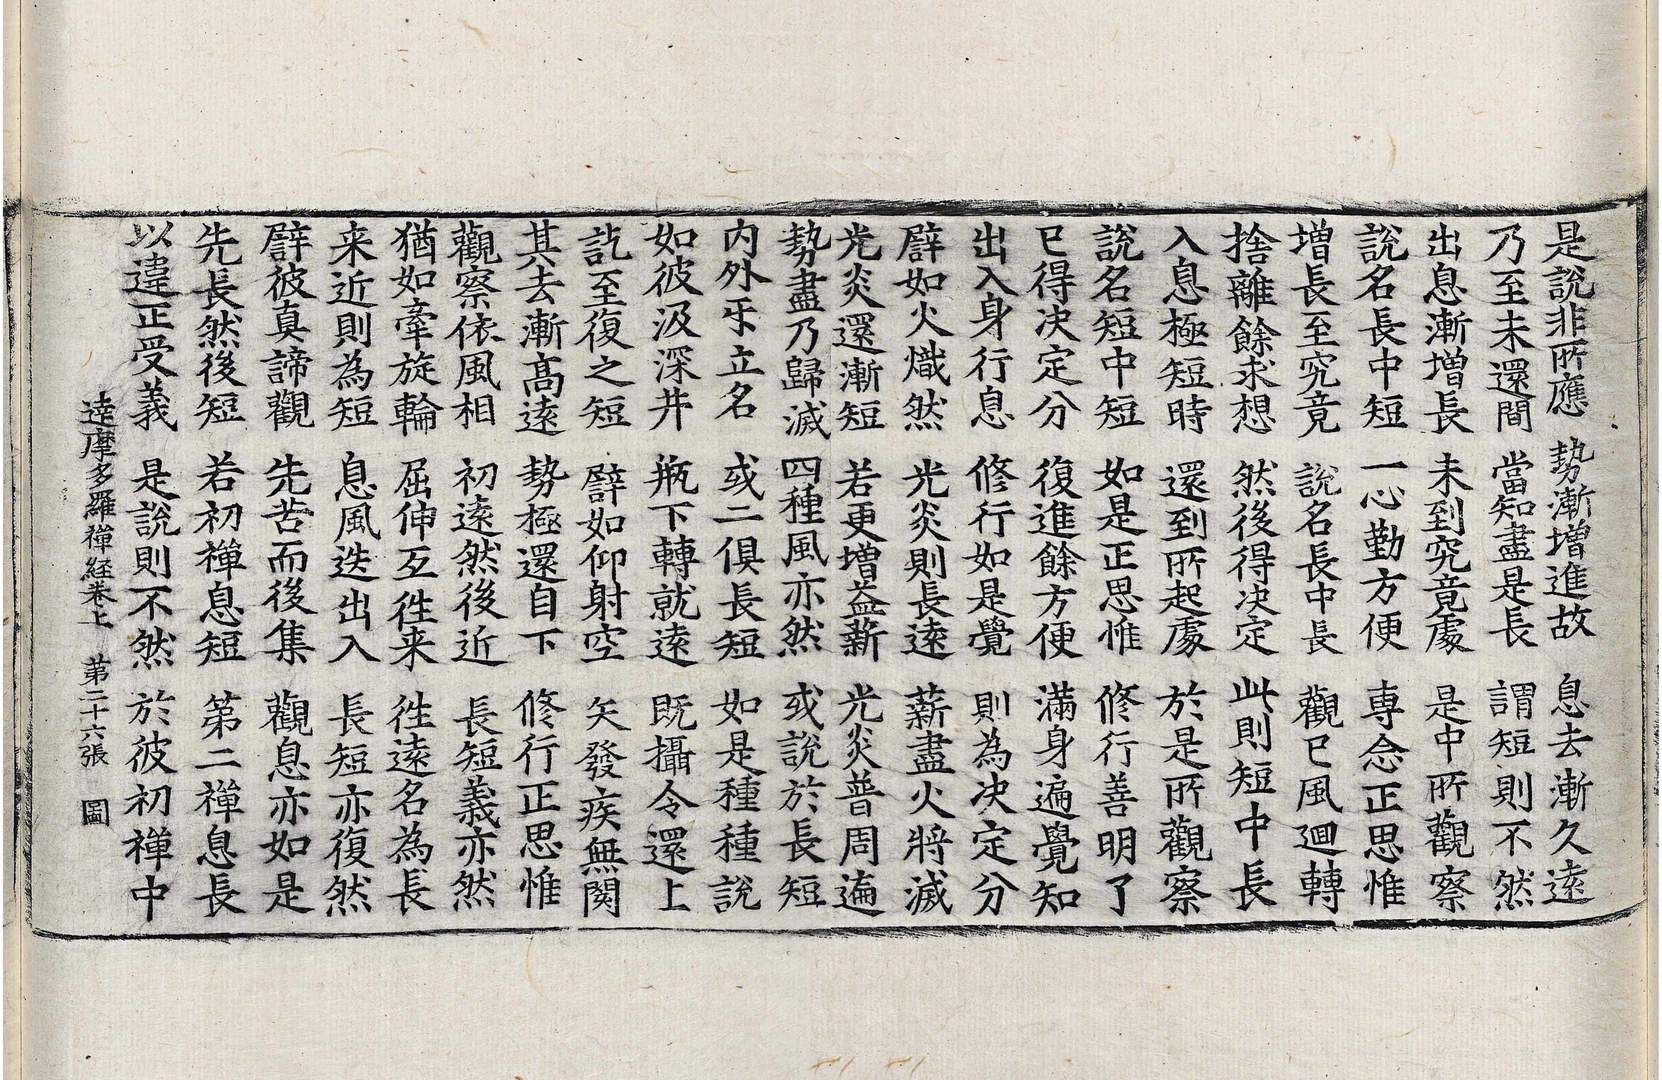 是說非所應　勢漸增進故　息去漸久遠
乃至未還閒　當知盡是長　謂短則不然
出息漸增長　未到究竟處　是中所觀察
說名長中短　一心勤方便　專念正思惟
增長至究竟　說名長中長　觀已風迴轉
捨離餘求想　然後得決定　此則短中長
入息極短時　還到所起處　於是所觀察
說名短中短　如是正思惟　修行善明了
已得決定分　復進餘方便　滿身遍覺知
出入身行息　修行如是覺　則為決定分
譬如火熾然　光炎則長遠　薪盡火將滅
光炎還漸短　若更增益薪　光炎普周遍
勢盡乃歸滅　四種風亦然　或說於長短
內外牙立名　或二俱長短　如是種種說
如彼汲深井　瓶下轉就遠　既攝令還上
訖至復之短　譬如仰射空　矢發疾無閡
其去漸髙遠　勢極還自下　修行正思惟
觀察依風相　初遠然後近　長短義亦然
猶如牽旋輪　屈伸互往来　往遠名為長
来近則為短　息風迭出入　長短亦復然
譬彼真諦觀　先苦而後集　觀息亦如是
先長然後短　若初禪息短　第二禪息長
以違正受義　是說則不然　於彼初禪中
達摩多羅禪経卷上　第二十六張　圖